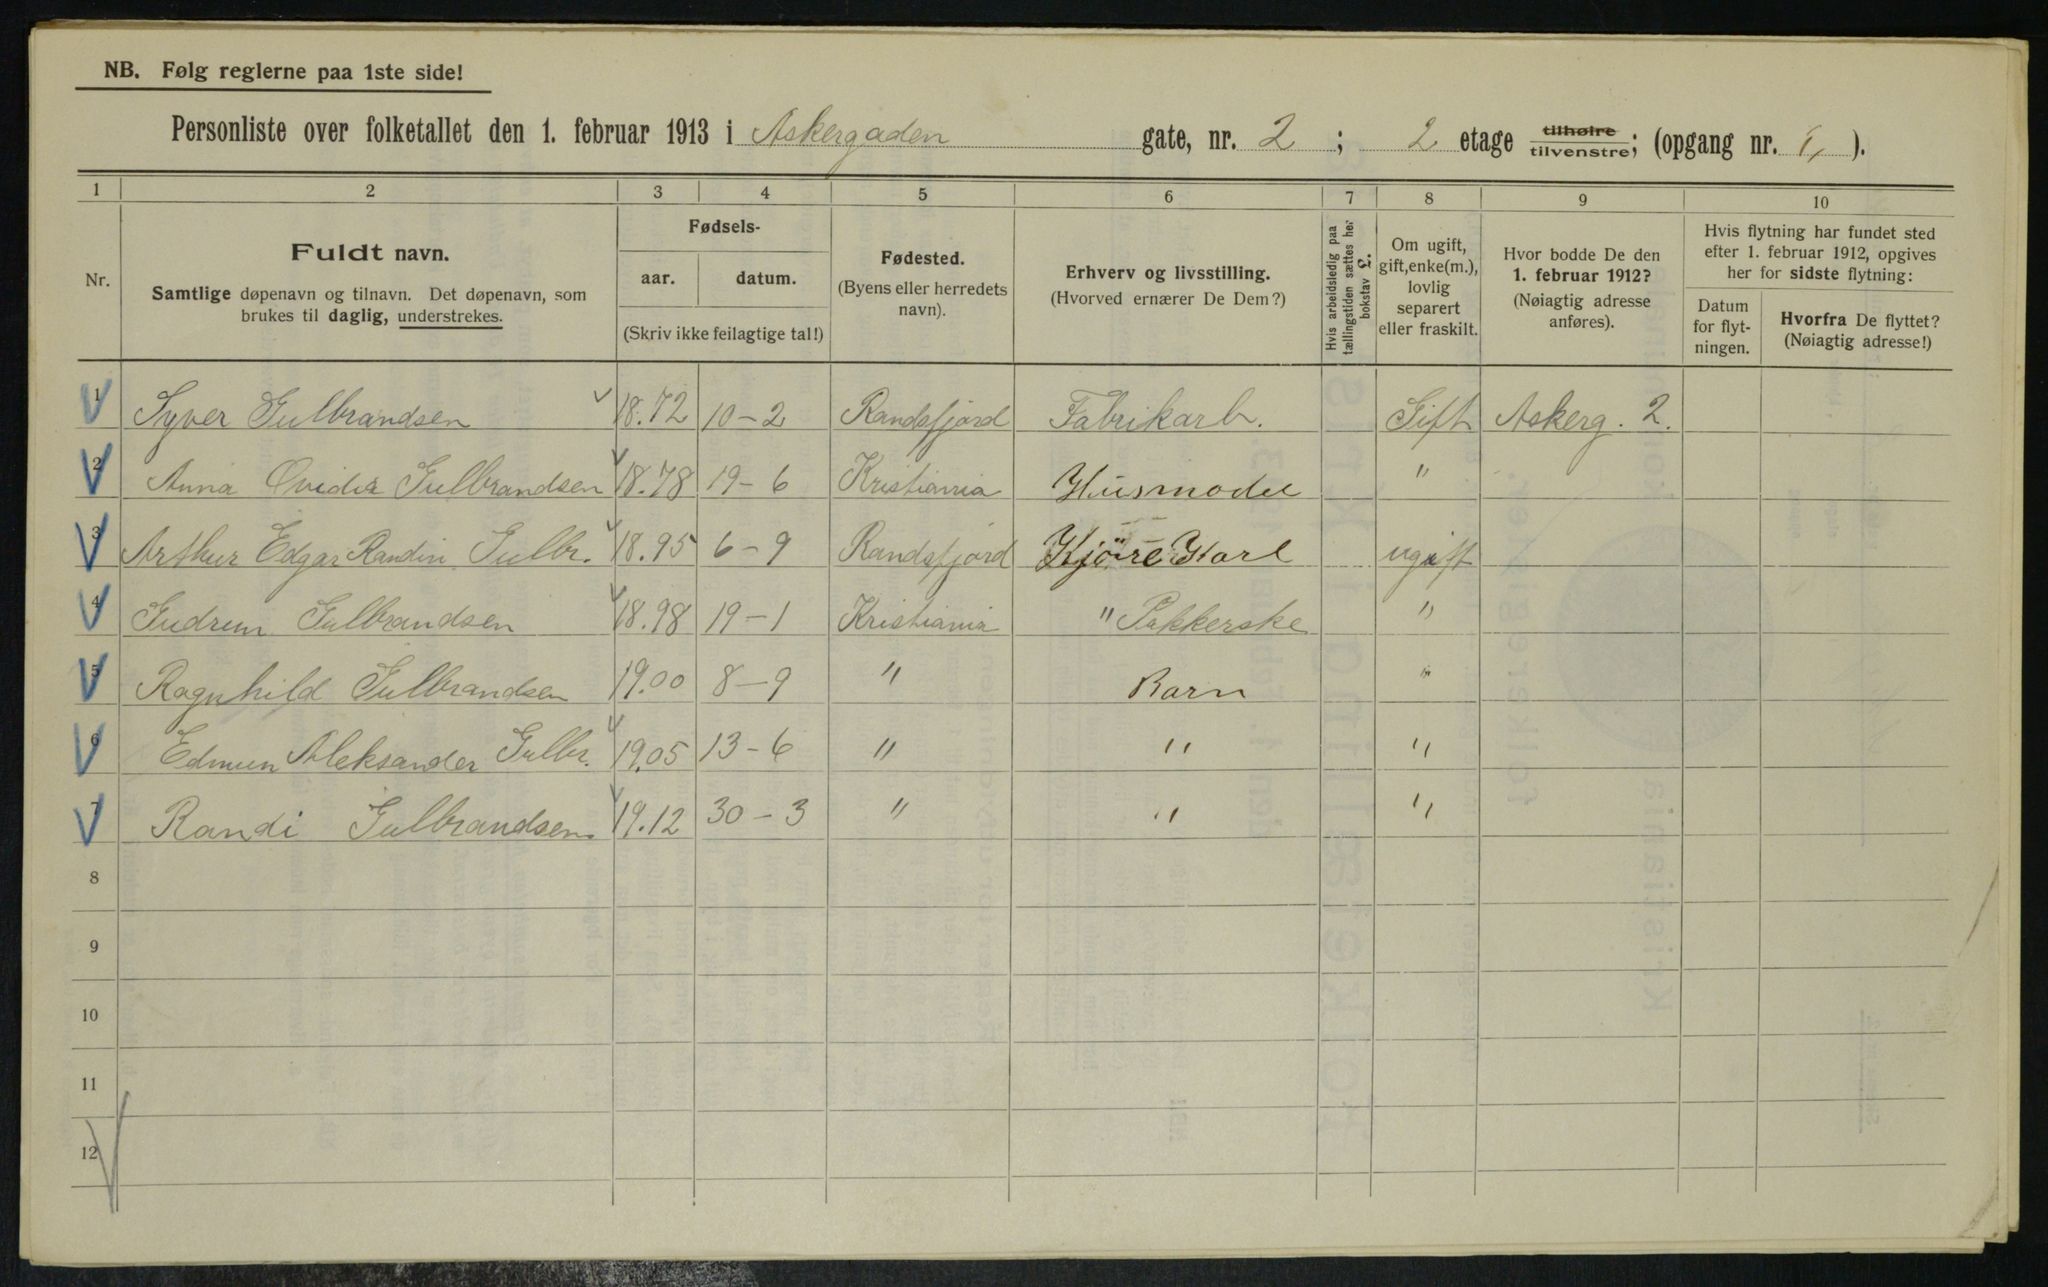 NB. Følg reglerne paa 1ste side!
Personliste over folketallet den 1. februar 1913 i Askergaden gate, nr. 2 ; 2 etage tilhøire tilvenstre; (opgang nr. 1, ).
1 2 3 4 5 6 7 8 9 10
Nr.
Fuldt navn.
Samtlige døpenavn og tilnavn. Det døpenavn, som
brukes til daglig, understrekes.
Fødsels-
aar. datum.
(Skriv ikke feilagtige tal!)
Fødested.
(Byens eller herredets
navn).
Erhverv og livsstilling.
(Hvorved ernærer De Dem?)
Hvis arbeidsledig paa
tællingstiden sættes her
bokstav L.
Om ugift,
gift, enke(m.),
lovlig
separert
eller fraskilt.
Hvor bodde De den
1. februar 1912?
(Nøiagtig adresse
anføres).
Hvis flytning har fundet sted
efter 1. februar 1912, opgives
her for sidste flytning:
Datum
for flyt-
ningen.
Hvorfra De flyttet?
(Nøiagtig adresse!)
1 Syver Gulbrandsen 18.72 10-2 Randsfjord Fabrikarb. Gift Askerg. 2.
2 Anna Ovidia Gulbrandsen 18.78 19-6 Kristiania Husmoder "
3 Arthur Edgar Randin Gulbr. 18.95 6-9 Randsfjord Kjøre Karl ugift
4 Gudrun Gulbrandsen 18.98 19-1 Kristiania " Pakkerske "
5 Ragnhild Gulbrandsen 19.00 8-9 " Barn "
6 Edmun Aleksander Gulbr. 19.05 13-6 " " "
7 Randi Gulbrandsen 19.12 30-3 " " "
8
9
10
11
12